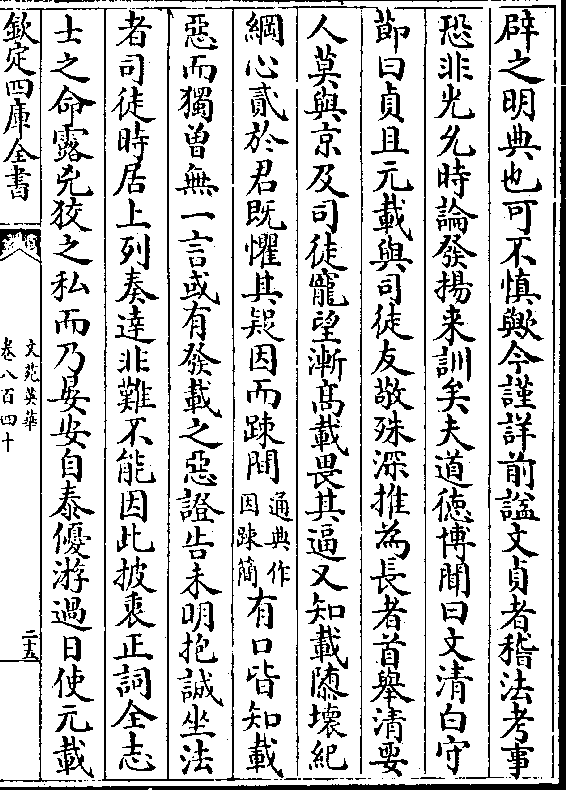 辟之明典也可不慎歟今謹詳前諡文貞者稽法考事
恐非光允時論發揚来訓矣夫道德博聞曰文清白守
節曰貞且元載與司徒友敬殊深推為長者首舉清要
人莫與京及司徒寵望漸髙載畏其逼又知載隳壞紀
綱心貳於君既懼其疑因而踈間通典作因踈簡有口皆知載
惡而獨曽無一言或有發載之惡證告未明抱誠坐法
者司徒時居上列奏達非難不能因此披衷正詞全志
士之命露兇狡之私而乃晏安自泰優游過日使元載
欽定四庫全書
文苑英華
卷八百四十
二十五